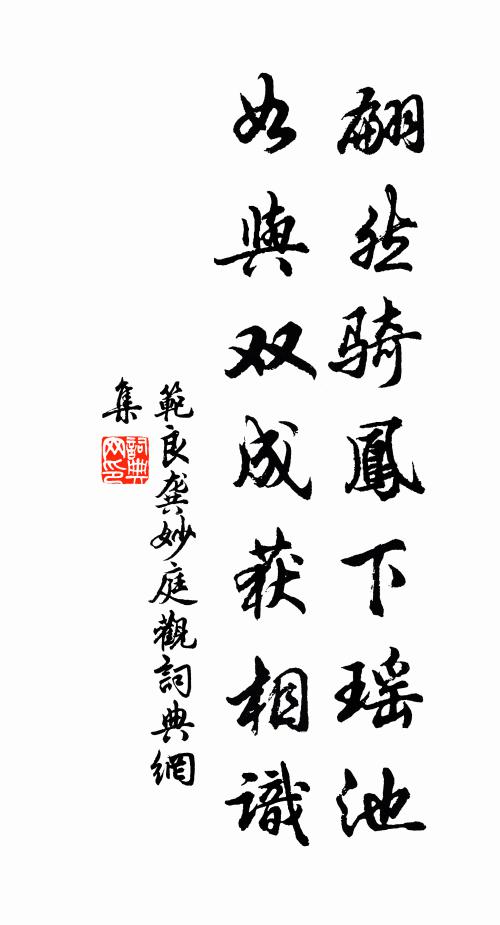 翩然骑鳳下瑶池
如與双成获相識
範良龚妙庭觀詞典網
集
詞典网印